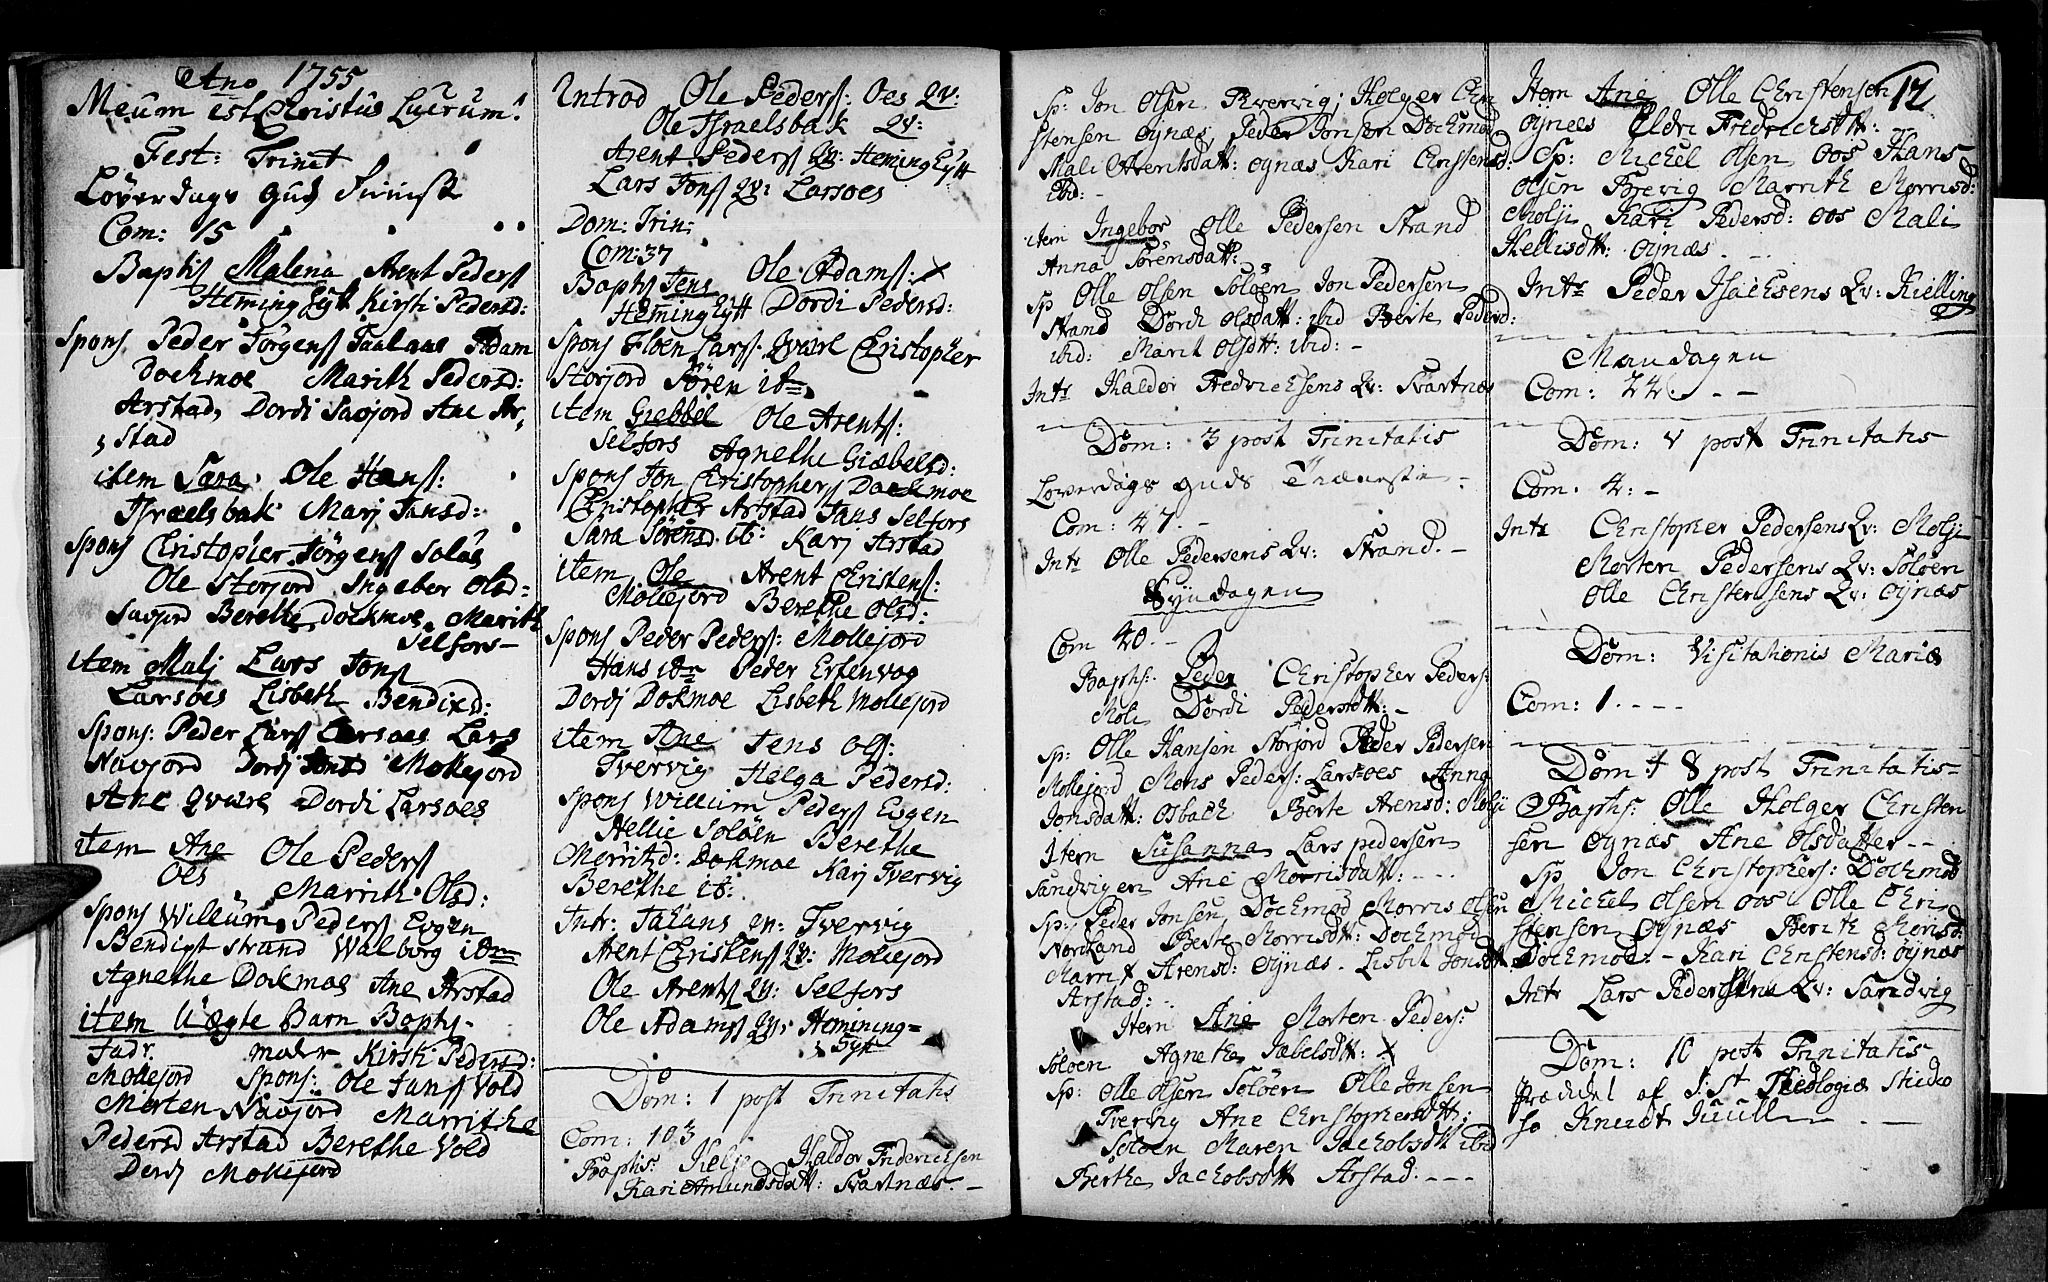 Ano 1755
Meum est Christus Lucrum!
Fest: Trinit
Løverdags Guds
Com: 15
Baptis Malena Arent Peders
Heming Eytt Kirsti Pedersd:
Spons Peder Jörgens Adam
Dockmoe Marith Pedersd:
Arstad, Dordi Savjord Ane Ar,
, stad
item Sara. Ole Hans:
Israelsbak Marj Jansd:
Spons Christopher Jörgens Soløe
Ole Storjord Ingebor Olsd:
Savjord Berethe Dockmoe Marith
Selfors-
item Malj Lars Jons
Larsoes Lisbeth Bendixd:
Spons: Peder Lars Larsoes Lars
Navjord Dordj Jonsd Mollejord
Ane Qvære Dordi Larsoes
item Ane Ole Peders
Oes Marrith Olsd:
Spons Willum Peders Evgen
Bendigt Strand Walborg ibm
Agnethe Dokmoe Ane Arstad
item Uægte Barn Bapts-
fadr. moder Kirsti Pedersd:
Mollejord Spons: Ole Jans Vold
Morten Navjord Marrithe
Pedersd Arstad Berethe Vold
Dordj Mollejord
Introd Ole Peders: Oes Qv:
Ole Israelsbak Qv:
Arent Peders Qv: Heming Eytt
Lars Jons Qv: Larsoes
Dom: Trin:
Com: 37
Bapts Jens Ole Adams:
Heming Eytt Dordi Pedersd:
Spons Floen Lars: Qvære Christopher
Storjord Sören ibm
item Giebbel Ole Arents:
Selfors Agnethe Giæbelsd:
Spons Jon Christophers Dockmoe
Christopher Arstad Jans Selfors
Sara Sörensd ib: Karj Arstad
item Ole Arent Christens:
Mollejord Berethe Olsd:
Spons Peder Peders: Mollejord
Hans ibm Peder Ertenvog
Dordj Dokmoe Lisbeth Mollejord
item Ane Jens Ols:
Tvervig Helga Pedersd:
Spons Willum Peders Evgen
Hellie Soløen Berethe
Merritzd: Dokmoe Karj Tvervig
Berethe ib:
Intr: Jahans Qv: Tvervig
Arent Christens Qv: Mollejord
Ole Arents Qv: Selfors
Ole Adams Qv: Hemining=
Eytt
Dom: 1 post Trinitatis
Com: 103
Baptis: Haldor Friderichsen
Kari Amundsdatt: Svartnæs. -
Sp: Jon Olsen Kvervig; Holger Chri
stensen Øynæs Peder Jonsen Dockmod
Mali Arentsdatt: Øynæs Kari Christensd:
ibd: -
item Ingebor Olle Pedersen Strand
Anna Sörensdatt:
Sp Olle Olsen Soløen Jon Pedersen
Strand Dordi Olsdatt: ibid Berte Pedersd:
ibid: Marit Olsdtt: ibid: -
Intr Haldor Fredrichsens Qv: Svartnæs
Dom: 3 post Trinitatis
Loverdags Guds Tieneste
Com: 47. -
Intr Olle Pedersens Qv: Strand. -
Syndagen
Com 40. -
Bapths: Peder Christopher Peders:
Moli Dordi Pedersdtt: -
Sp: Olle Hansen Storjord Peder Pedersen
Mollejord Mons Peders: Larsoes Anna
Jonsdatt: Osbach Berte Arensd: Molji
Item Susanna Lars pedersen
Sandvigen Ane Morrisdatt: - - -
Sp: Peder Jonsen Dockmod Morris Olsen
Nordland Berte Morrisdtt: Dockmod
Marrit Arensd: Øynæs. Lisbet Jonsdtt
Arstad: -
Item Ane Morten Peders:
Soløen Agnethe Jabelsdtt:
Sp: Olle Olsen Soløen Olle Jonsen
Tvering Ane Christophersdtt:
Soløen Maren Jachobsdtt ibid
Berthe Jachobsdtt Arstad: - - -
12
Item Ane Olle Christensen
Øynæs Eldri Fredrichsdtt:
Sp: Michel Olsen Oos Hans
Olsen Forevig Marrith Morrisd:
Molji Kari Pedersd: Oos Mali
Hellisdtt: Øynæs. - -
Intr Peder Isachsens Qv: Kielling
Mandagen
Com: 22. - -
Dom: V post Trinitatis
Com. 4: -
Intr Christopher Pedersens Qv: Molji
Morten Pedersens Qv: Soløen
Olle Christensens Qv: Øynæs
Dom: Visitationis Mariæ
Com: 1. - - -
Dom: 8 post Trinitatis-
Bapths: Olle Holger Christen
sen Øynæs Ane Olsdatter - -
Sp Jon Christophers: Dockmod
Michel Olsen Oos Olle Chri
stensen Øynæs Berit Morisd:
Dockmod: - Kari Christensd: Øynæs
Intr Lars Pedersens Qv: Sandvig
Dom: 10 post Trinitatis
Prædiket af S: St Theologiæ Studio
so Knudt Juull